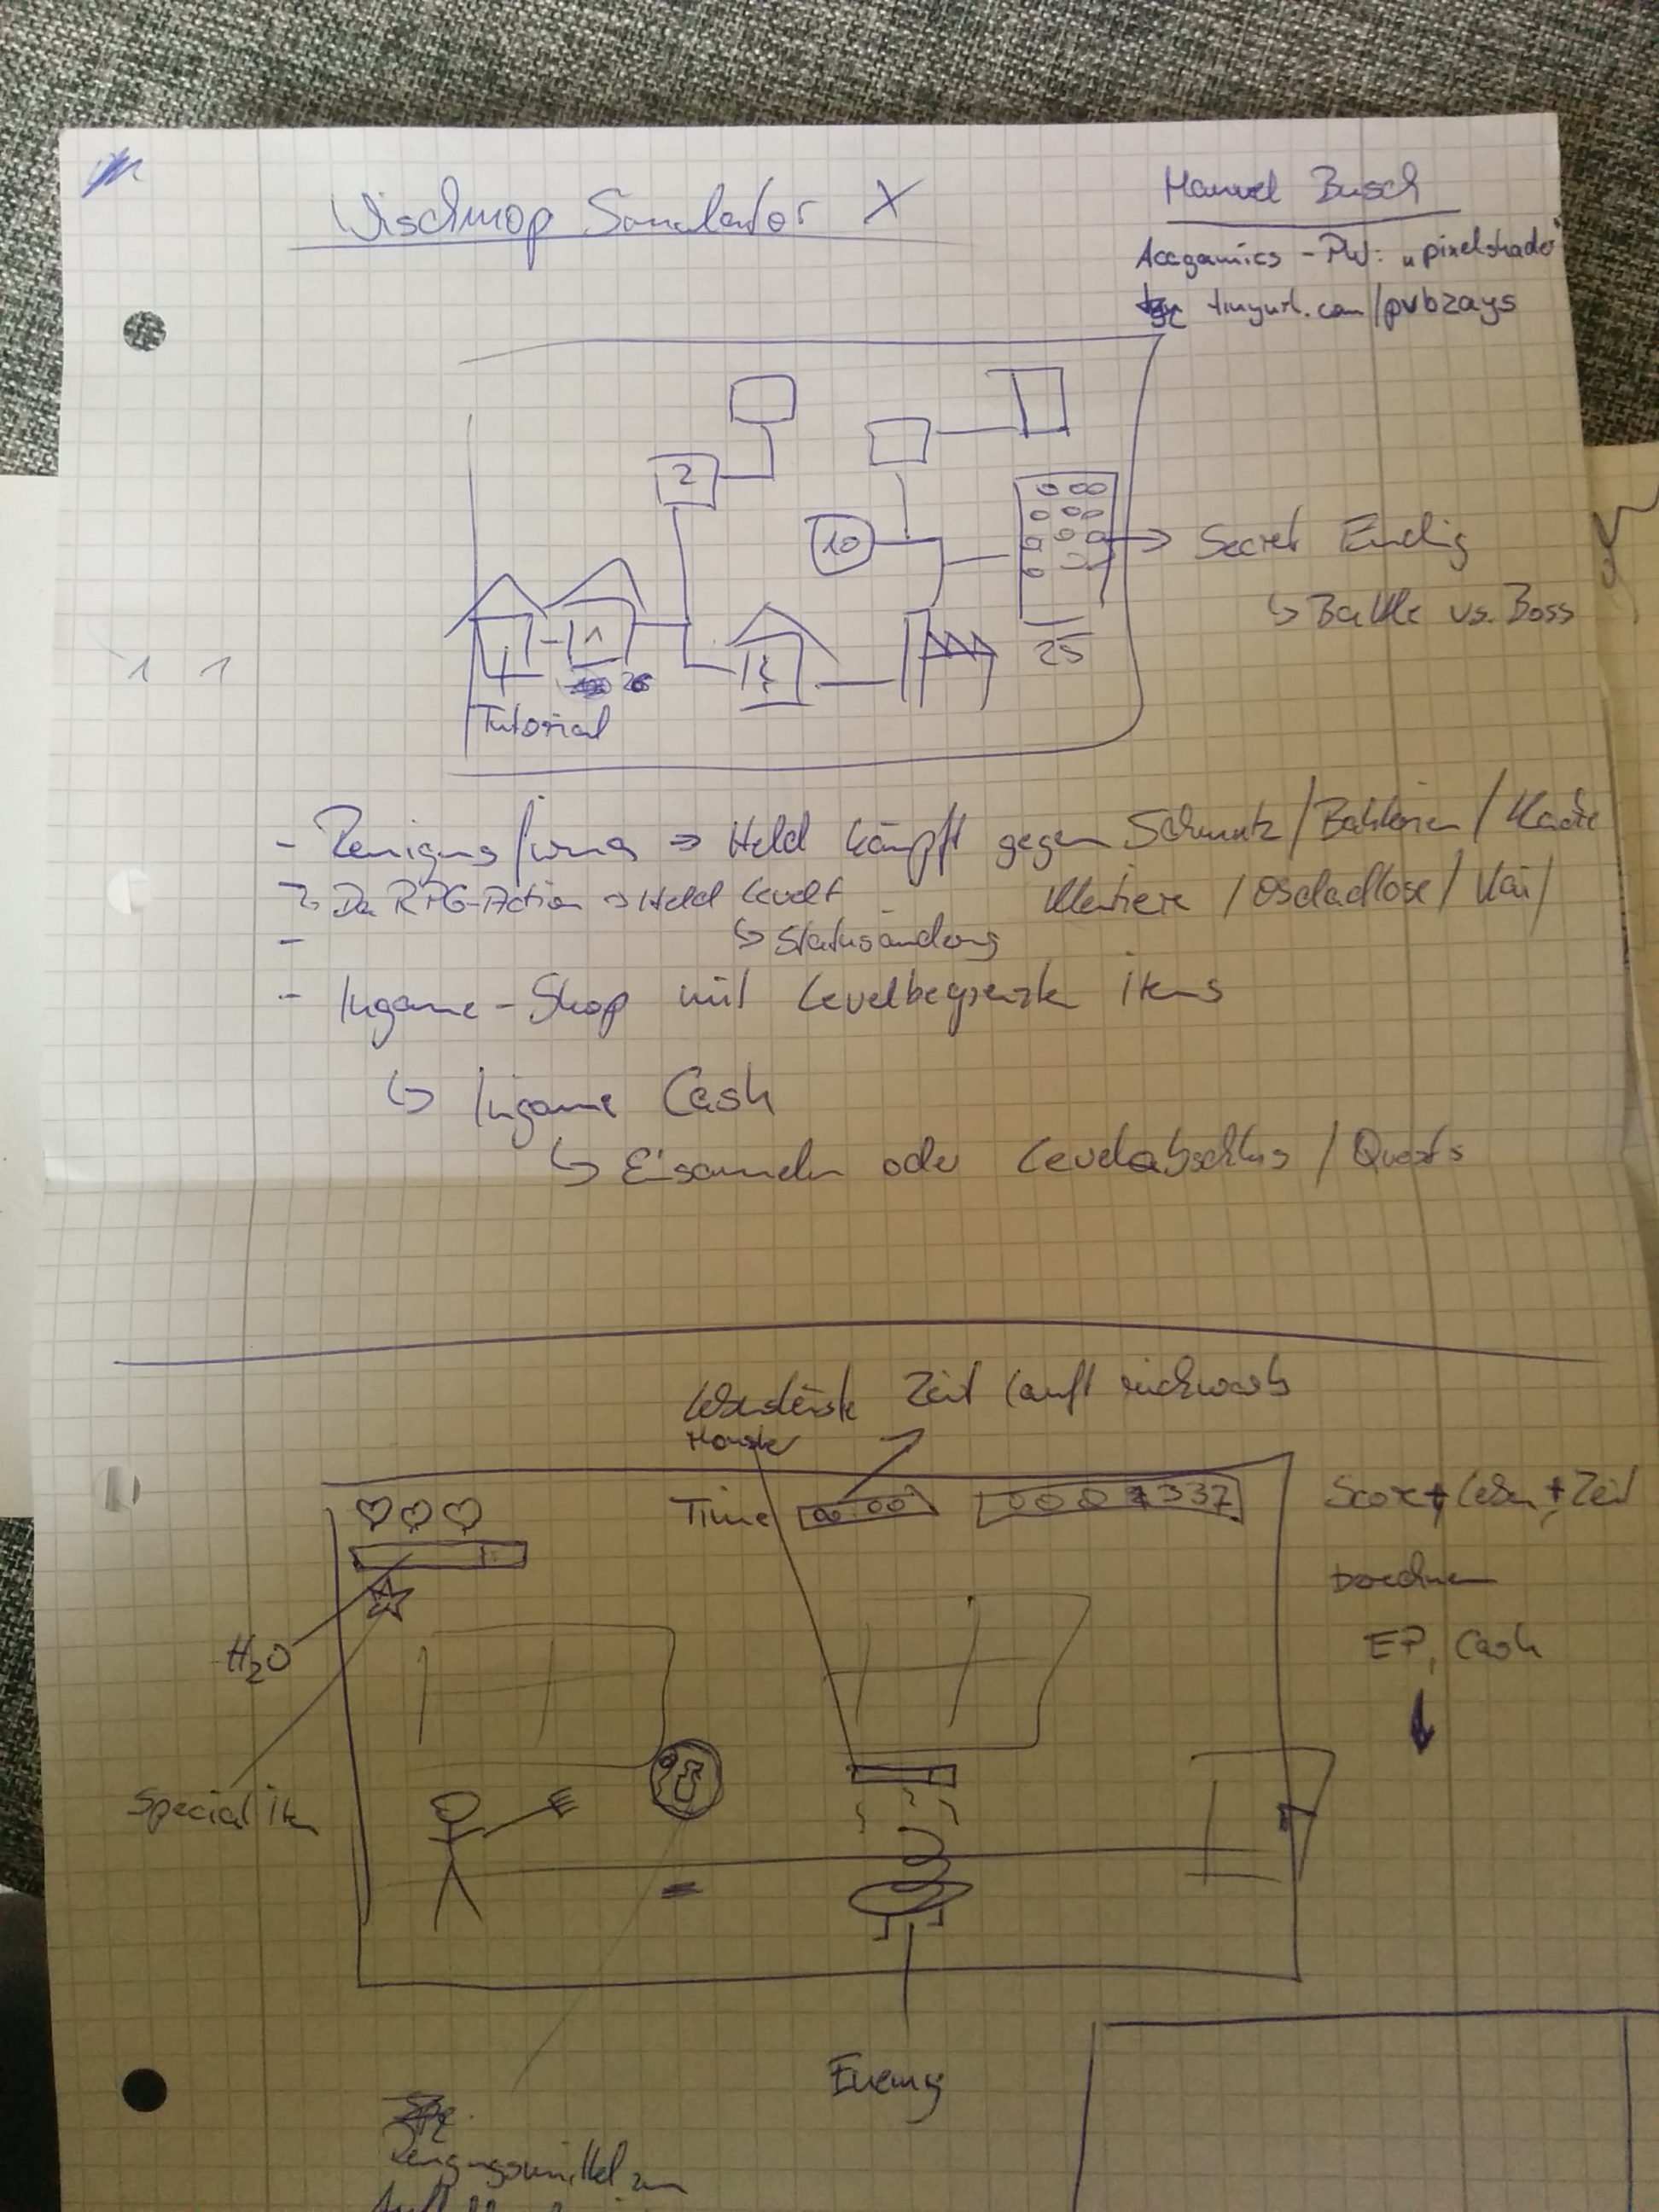 Wischmop Simulator X
Manuel Busch
Accgamics - PW: „pixelshader"
tinyurl.com/pvbzays
2
10
1
Tutorial
25
→ Secret Ending
↳ Battle vs. Boss
1 1
- Reinigungsfirma ⇒ Held kämpft gegen Schmutz / Bakterien /
/ Obdachlose /
RPG-Action → Held levelt
↳ Statusänderung
- Ingame-Shop mit levelbegrenzte Items
↳ Ingame Cash
↳ Einsammeln oder Levelabschluss / Quests
Lebensleiste
Monster
Zeit läuft rückwärts
Time 00:00
0001337
Score + Leben + Zeit
berechnen
EP, Cash
H₂O
Special Item
Enemy
Reinigungsmittel zum